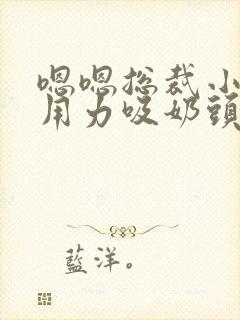 嗯嗯总裁小
用力吸奶頭
藍洋。